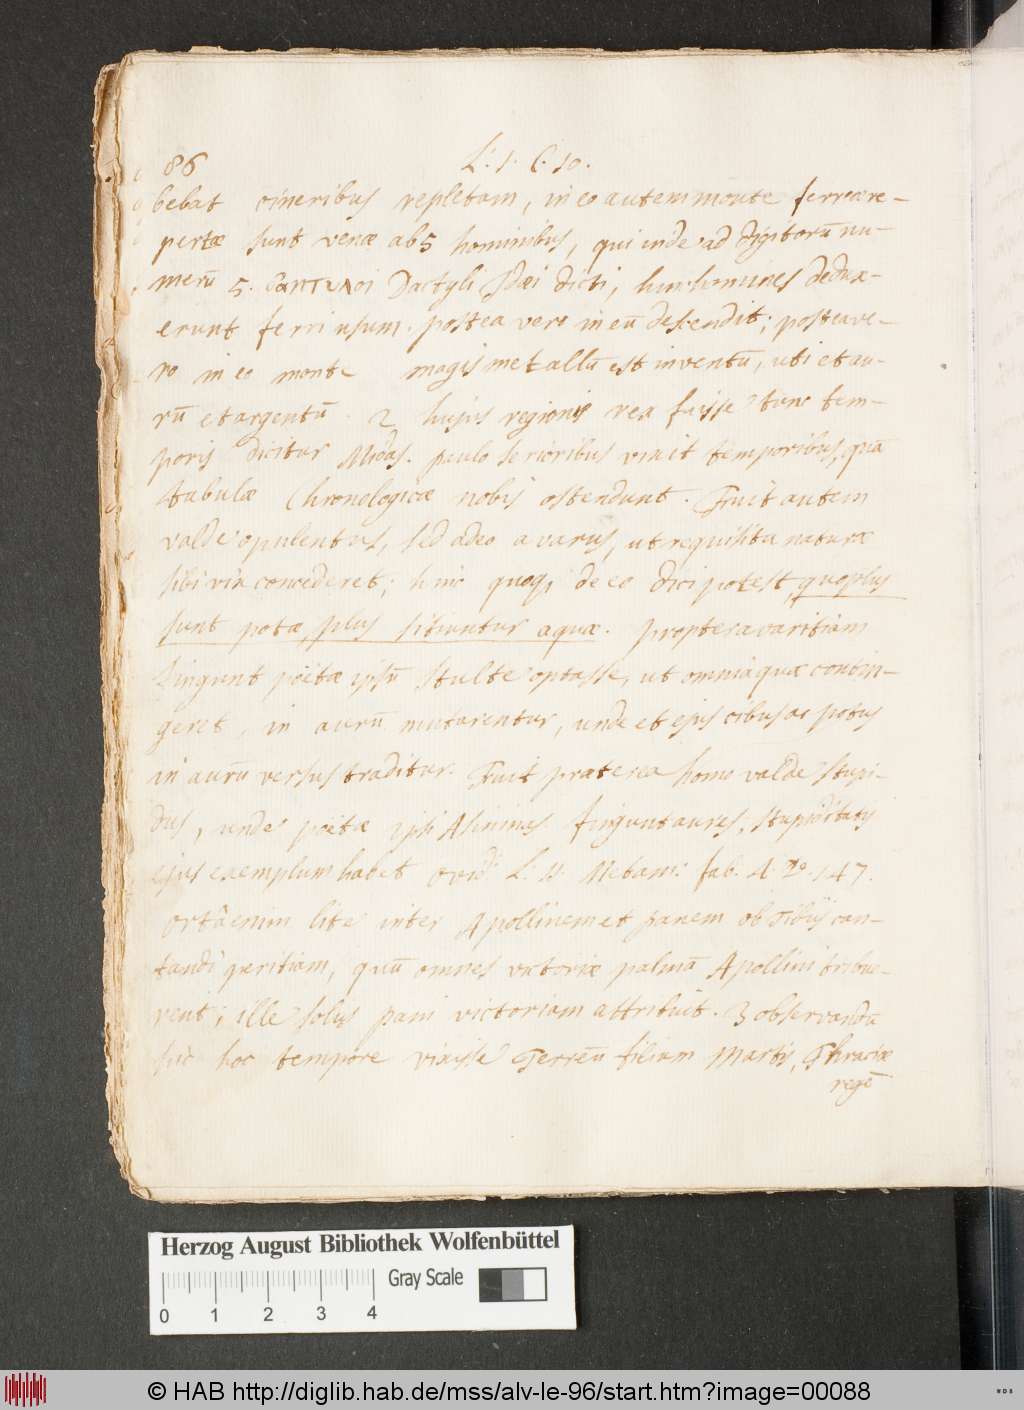 86
L. 1. C. 10.
bebat cineribus repletam, in eo autem monte ferreæ re-
pertæ sunt venæ ab 5 hominibus, qui inde ad digitorū nu-
merū 5. Dactyli Idæi dicti, hinc homines dedux-
erunt ferri usum. postea vero in eū descendit; postea ve-
ro in eo monte magis metallū est inventū, uti et au-
rū et argentū. 2 hujus regionis rex fuisse tunc tem-
poris dicitur Midas. paulo serioribus vixit temporibus, quā
tabulæ Chronologicæ nobis ostendunt. Fuit autem
valde opulentus, sed adeo avarus, ut requisita naturæ
sibi vix concederet; hinc quoqȝ de eo dici potest, quo plus
sunt potæ, plus sitiuntur aquæ. propter avaritiam
fingunt poëtæ ipsū stulte optasse, ut omnia quæ contin-
geret, in aurū mutarentur, unde et ejus cibus ac potus
in aurū versus traditur. Fuit præterea homo valde stupi-
dus, unde poëtæ ipsi Asininas fingunt aures, stupiditatis
ejus exemplum habet Ovid. L. 11. Metam: fab. 4. 147.
ortâ enim lite inter Apollinem et Panem ob tibiis can-
tandi peritiam, quū omnes victoriæ palmā Apollini tribue-
rent; ille solus pani victoriam attribuit. 3 observandū
hic hoc tempore vixisse Terreū filium Martis, Thraciæ
regē
Herzog August Bibliothek Wolfenbüttel
Gray Scale
0 1 2 3 4
© HAB http://diglib.hab.de/mss/alv-le-96/start.htm?image=00088